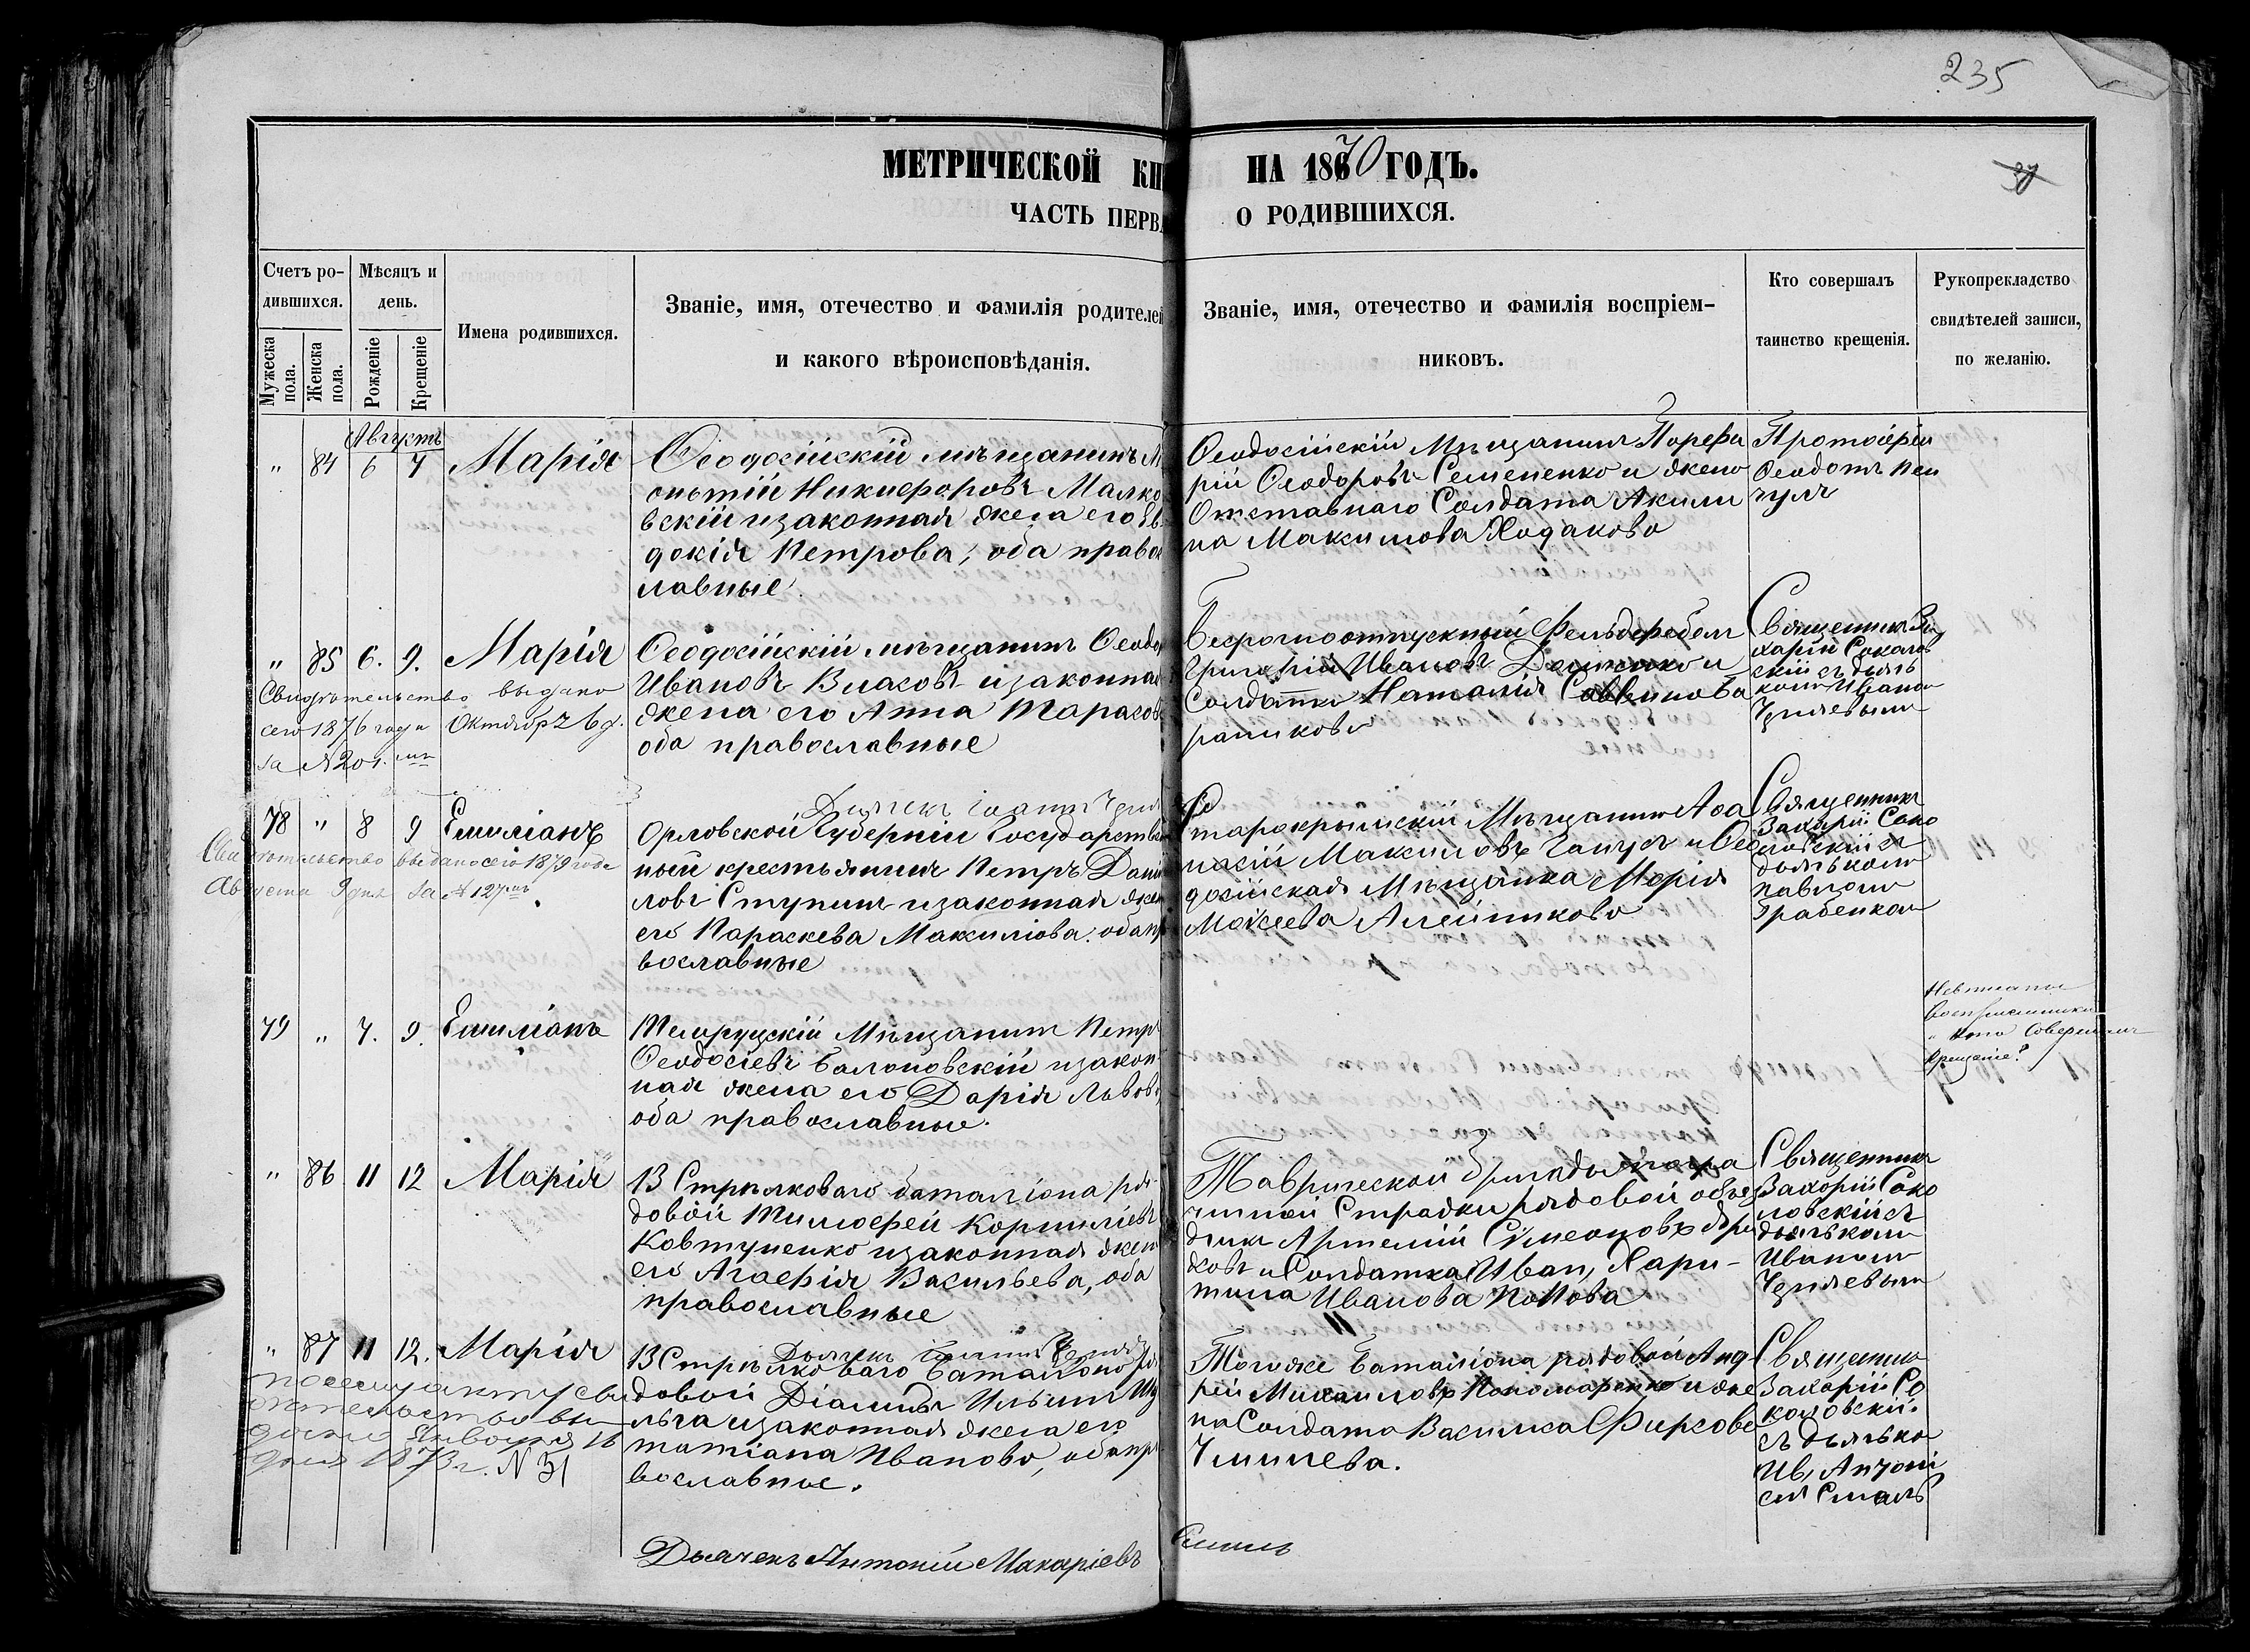 235
МЕТРИЧЕСКОЙ КН НА 1870 ГОДЪ.
37
ЧАСТЬ ПЕРВА О РОДИВШИХСЯ.
Счетъ ро-
дившихся.
Мужеска
пола.
Женска
пола.
Мѣсяцъ и
день.
Рожденіе
Крещеніе
Имена родившихся.
Званіе, имя, отечество и фамилія родителей
и какого вѣроисповѣданія.
Званіе, имя, отечество и фамилія воспріем-
никовъ.
Кто совершалъ
таинство крещенія.
Рукоприкладство
свидѣтелей записи,
по желанію.
Августъ
" 84 6 7 Марія
Ѳеодосійскій мѣщанинъ
Никифоровъ Малко
вскій и законная жена его Ев
докія Петрова, оба правос
лавные.
Ѳеодосійскій Мѣщанинъ Порфи
рій Ѳеодоровъ Семененко и жена
Отставнаго Солдата Акили
на Максимова Ходакова
Протоіерей
Ѳеодотъ
" 85 6. 9. Марія
Свидѣтельство выдано
сего 1876 года Октября 26 д.
за № 201.
Ѳеодосійскій мѣщанинъ Ѳеодо
Ивановъ Власовъ и законная
жена его Анна Тарасов
оба православные
Безсрочноотпускный Фельдфебель
Григорій Ивановъ и
Солдатка Наталія Саввинова
Священникъ За
харій Соколов
скій съ дьяч
комъ Иваномъ
78 " 8 9 Емиліанъ
Свидѣтельство выдано сего 1879 года
Августа 9 дня за № 127
Дьячекъ Іоаннъ
Орловской Губерніи Государствен
ный крестьянинъ Петръ Дани
ловъ Ступинъ и законная жена
его Параскева Максимова. оба пра
вославные
Старокрымскій Мѣщанинъ Аѳа
насій Максимовъ Гапусъ и Ѳео
досійская Мѣщанка Марія
Моисеева Алейникова
Священникъ
Захарій Соко
ловскій съ
дьячкомъ
Павломъ
Грабенкомъ
79 " 7. 9. Емиліанъ
Мѣщанинъ Петръ
Ѳеодосіевъ Балоновскій и закон
ная жена его Дарія Львов
оба православные.
Невписаны
воспріемники
и кто совершилъ
крещеніе?
" 86 11 12 Марія
13 Стрѣлковаго баталіона ря
довой Тимофей Корниліевъ
Ковтуненко и законная жена
его Агафія Васильева, оба
православные
Таврической бригады
чной Стражи рядовой объѣз
дчикъ Артемій Симеоновъ
и Солдатка Иван, Хари-
тина Иванова Попова
Священникъ
Захарій Соко
ловскій съ
дьячкомъ
Иваномъ
" 87 11 12. Марія
По сему акту сви
дѣтельство вы
дано Января 16
дня 1873 г. № 31
Дьячекъ Іоаннъ
13 Стрѣлковаго Баталіона ря
довой Ильинъ
и законная жена его
Татіана Иванова, оба пра
вославные.
Того же Баталіона рядовой Анд
рей Михаиловъ Пономаренко и же
на Солдата Василиса Фирсова
Священникъ
Захарій Со
коловскій
съ дьячко
Ив, Антоні
емъ
Дьячекъ Антоній Макаріевъ